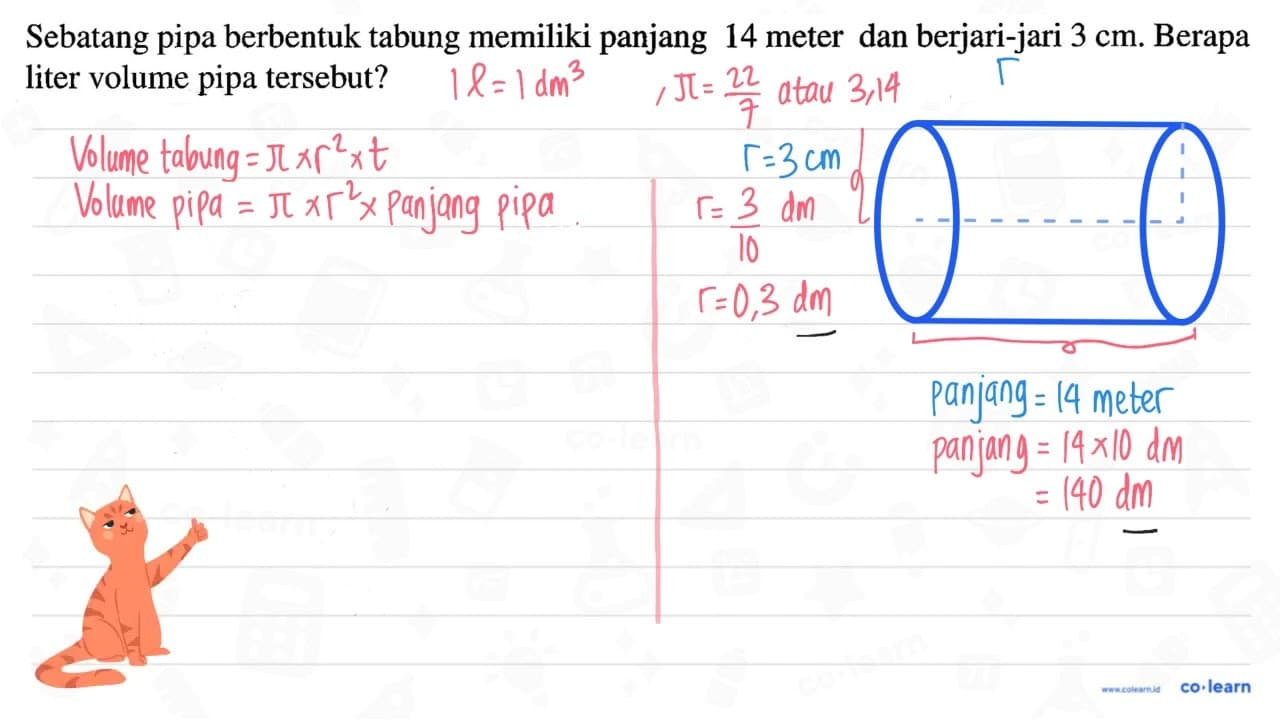 Sebatang pipa berbentuk tabung memiliki panjang 14 meter dan berjari-jari 3 cm. Berapa
liter volume pipa tersebut?
1 l = 1 dm³ , π = 22/7 atau 3,14
r
Volume tabung = π x r² x t
Volume pipa = π x r² x Panjang pipa
r = 3 cm
r = 3/10 dm
r = 0,3 dm
panjang = 14 meter
panjang = 14 x 10 dm
= 140 dm
co-learn
www.colearn.id co·learn